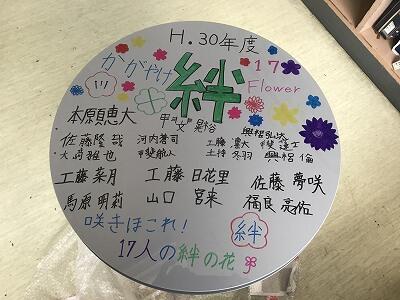 H.30年度
かがやけ 絆 17
Flower
本願恵大
甲門 晃裕
佐藤隆哉 河内蒼司 工藤 凜大 甲斐護士
大﨑雅也 甲斐航人 土持 冬羽 興梠 倫
工藤菜月 工藤 日花里 佐藤 夢咲
馬原明莉 山口 宮来 福良 亮佑
咲きほこれ! 絆
17人の絆の花